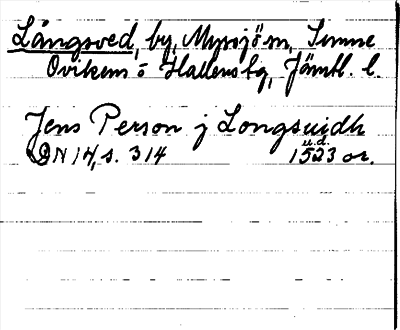 Långsved, by, Myssjö sn, Sunne
Ovikens o Hallens tg, Jämtl. l.
Jens Person j Longsuidh
DN 14, s. 314 u.d. 1523 or.